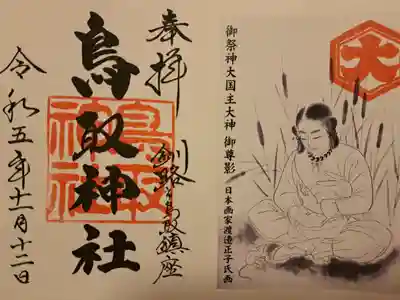 大
御祭神大国主大神 御尊影 日本画家渡邉正子氏画
奉拝
釧路 鎮座
鳥取神社
鳥取神社
令和五年十一月十二日